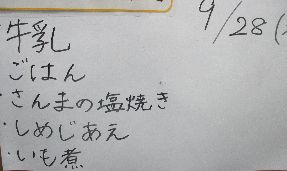 9/28(
牛乳
ごはん
・さんまの塩焼き
・しめじあえ
・いも煮